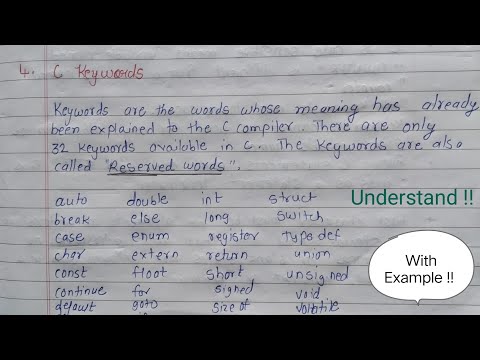 4. C Keywords
Keywords are the words whose meaning has already
been explained to the C compiler. There are only
32 keywords available in C. The keywords are also
called "Reserved words".
auto double int struct
break else long switch
case enum register typedef
char extern return union
const float short unsigned
continue for signed void
default goto sizeof volatile
Understand !!
With
Example !!